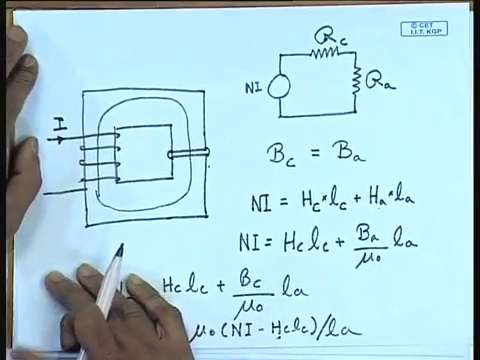 © CET
I.I.T. KGP
R_c
NI
R_a
I
B_c = B_a
NI = H_c * l_c + H_a * l_a
NI = H_c l_c + B_a/μ₀ l_a
H_c l_c + B_c/μ₀ l_a
μ₀ (NI - H_c l_c)/l_a